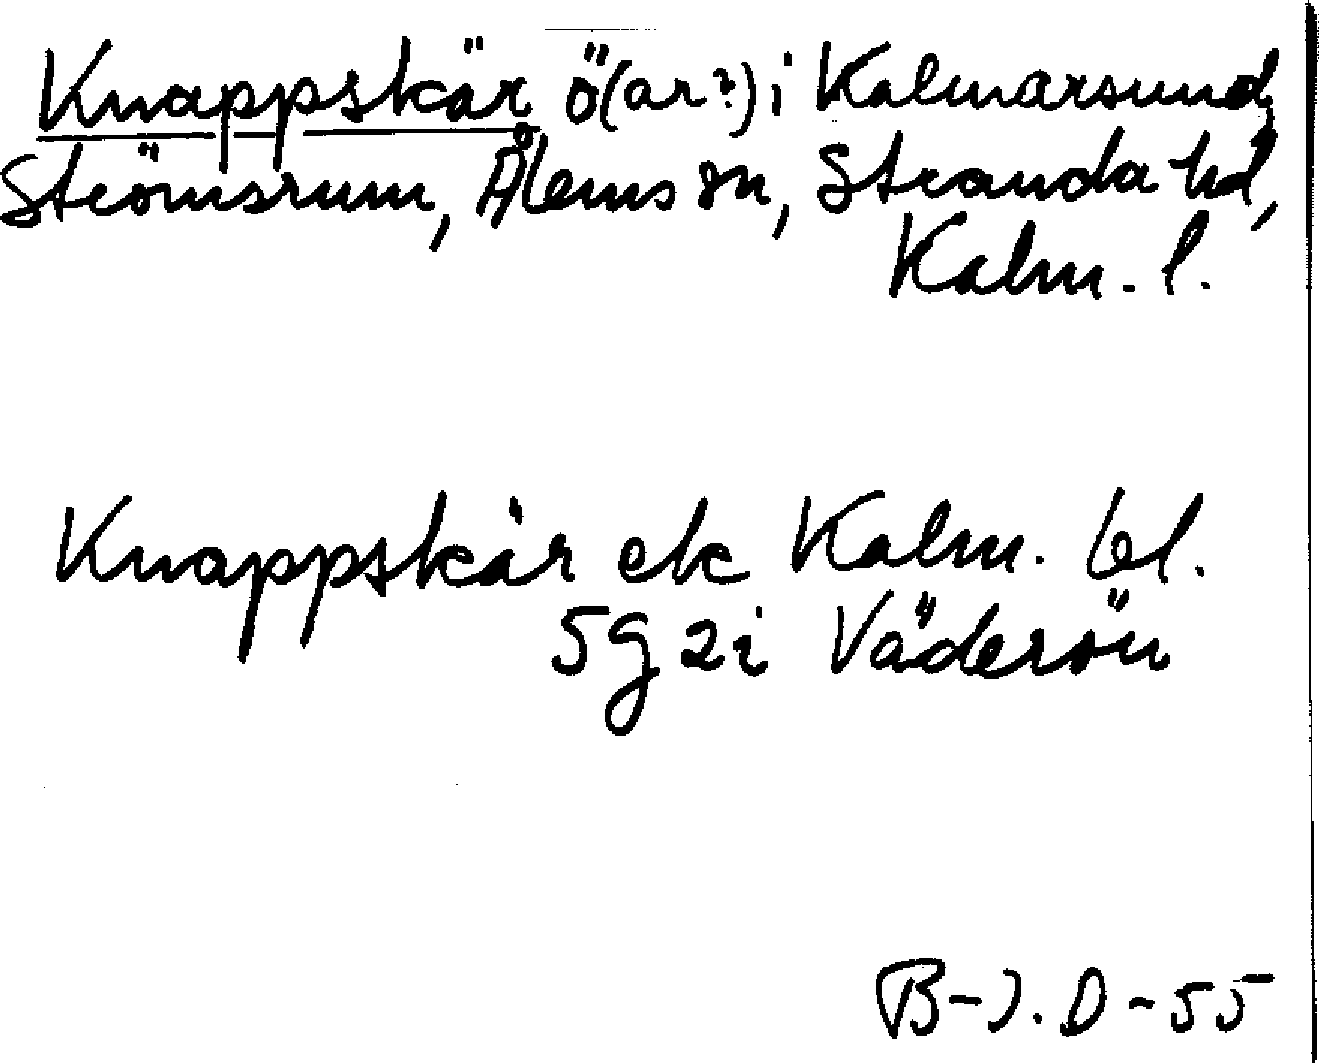 Knappskär ö(ar?) i Kalmarsund,
Strömsrum, Ålems sn, Stranda hd,
Kalm. l.
Knappskär ek Kalm. bl.
5g2i Väderön
B-J. D-55